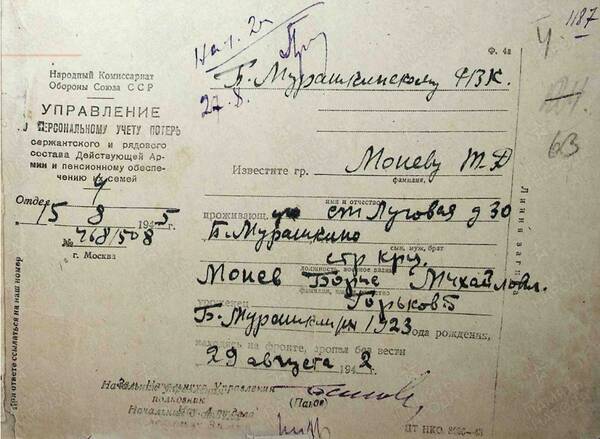 1187
Ф. 4а
Ч
63
На 1.
27.8.
Народный Комиссариат
Обороны Союза ССР
УПРАВЛЕНИЕ
ПО ПЕРСОНАЛЬНОМУ УЧЕТУ ПОТЕРЬ
сержантского и рядового
состава Действующей Ар-
мии и пенсионному обеспе-
чению их семей
Отдел 4
15 8 1945 г.
№ 768/508
г. Москва
При ответе ссылаться на наш номер
Б. Мурашкинскому РВК.
Известите гр. Моневу Т. Д
фамилия,
имя и отчество
проживающ. ст Луговая д 30
Б. Мурашкино
сын, муж, брат
стр кр-ц.
должность, военное звание
Монев Михайлов.
фамилия, имя, отчество
уроженец Горьков.
Б. Мурашкин р-н 1923 года рождения,
находясь на фронте, пропал без вести
29 августа 1942
Линия загиба
Зам. Начальника Управления
полковник
(Панов)
Начальник 4 отдела
ЦТ НКО